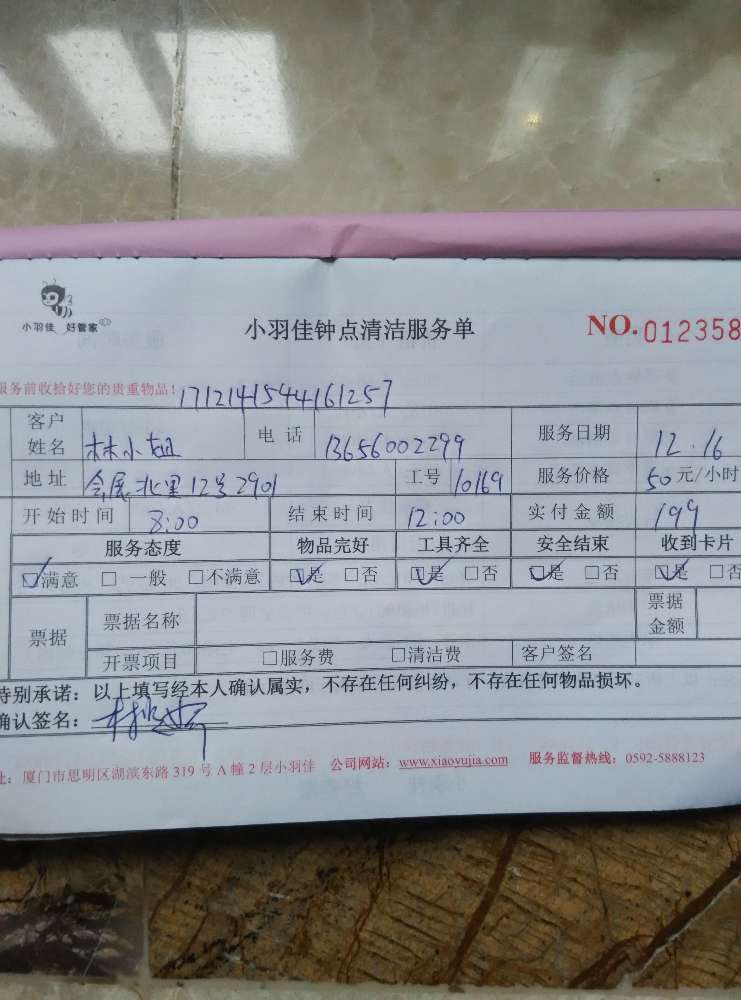 小羽佳 好管家
小羽佳钟点清洁服务单 NO.012358
服务前收拾好您的贵重物品! 1712141544161257
客户姓名 林小姐 电话 13656002299 服务日期 12.16
地址 会展北里12号2901 工号 10169 服务价格 50元/小时
开始时间 8:00 结束时间 12:00 实付金额 199
服务态度 物品完好 工具齐全 安全结束 收到卡片
☑满意 □一般 □不满意 ☑是 □否 ☑是 □否 ☑是 □否 ☑是 □否
票据 票据名称 票据金额
开票项目 □服务费 □清洁费 客户签名
特别承诺：以上填写经本人确认属实，不存在任何纠纷，不存在任何物品损坏。
确认签名：
址：厦门市思明区湖滨东路 319 号 A 幢 2 层小羽佳 公司网站：www.xiaoyujia.com 服务监督热线：0592-5888123